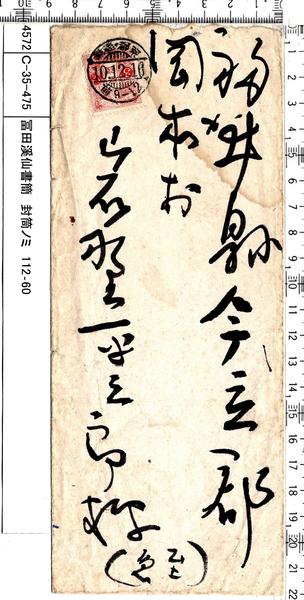 福井縣今立郡
岡本村
岩野平三郎様
(至急)
10.12.10
4572 C-35-475 冨田溪仙書簡 封筒ノミ 112-60